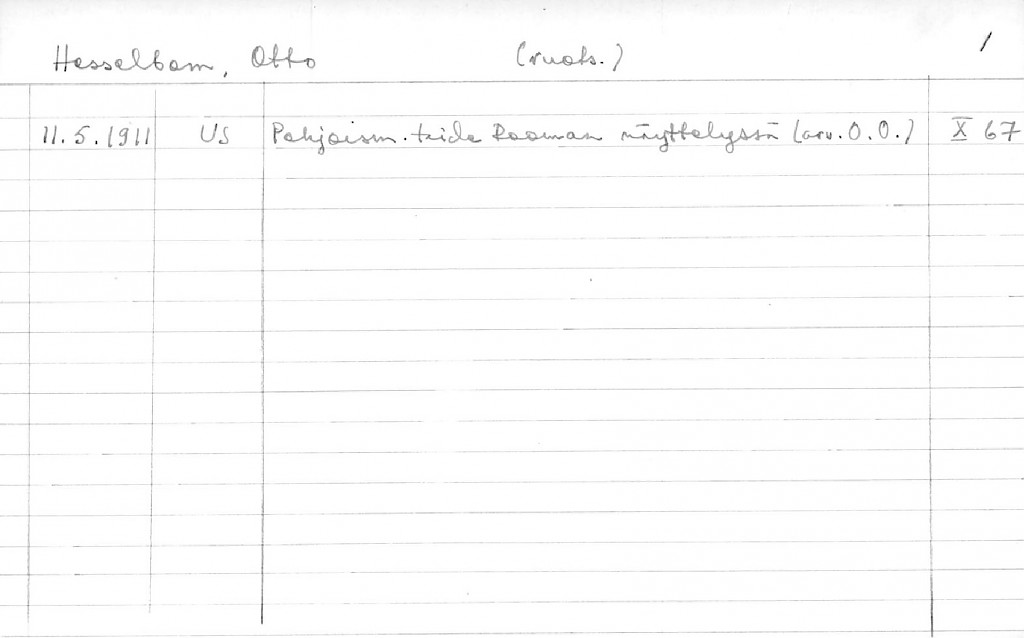 Hesselbom, Otto (ruots.) 1
11.5.1911 US Pohjoism. taide Rooman näyttelyssä (arv. O.O.) X 67